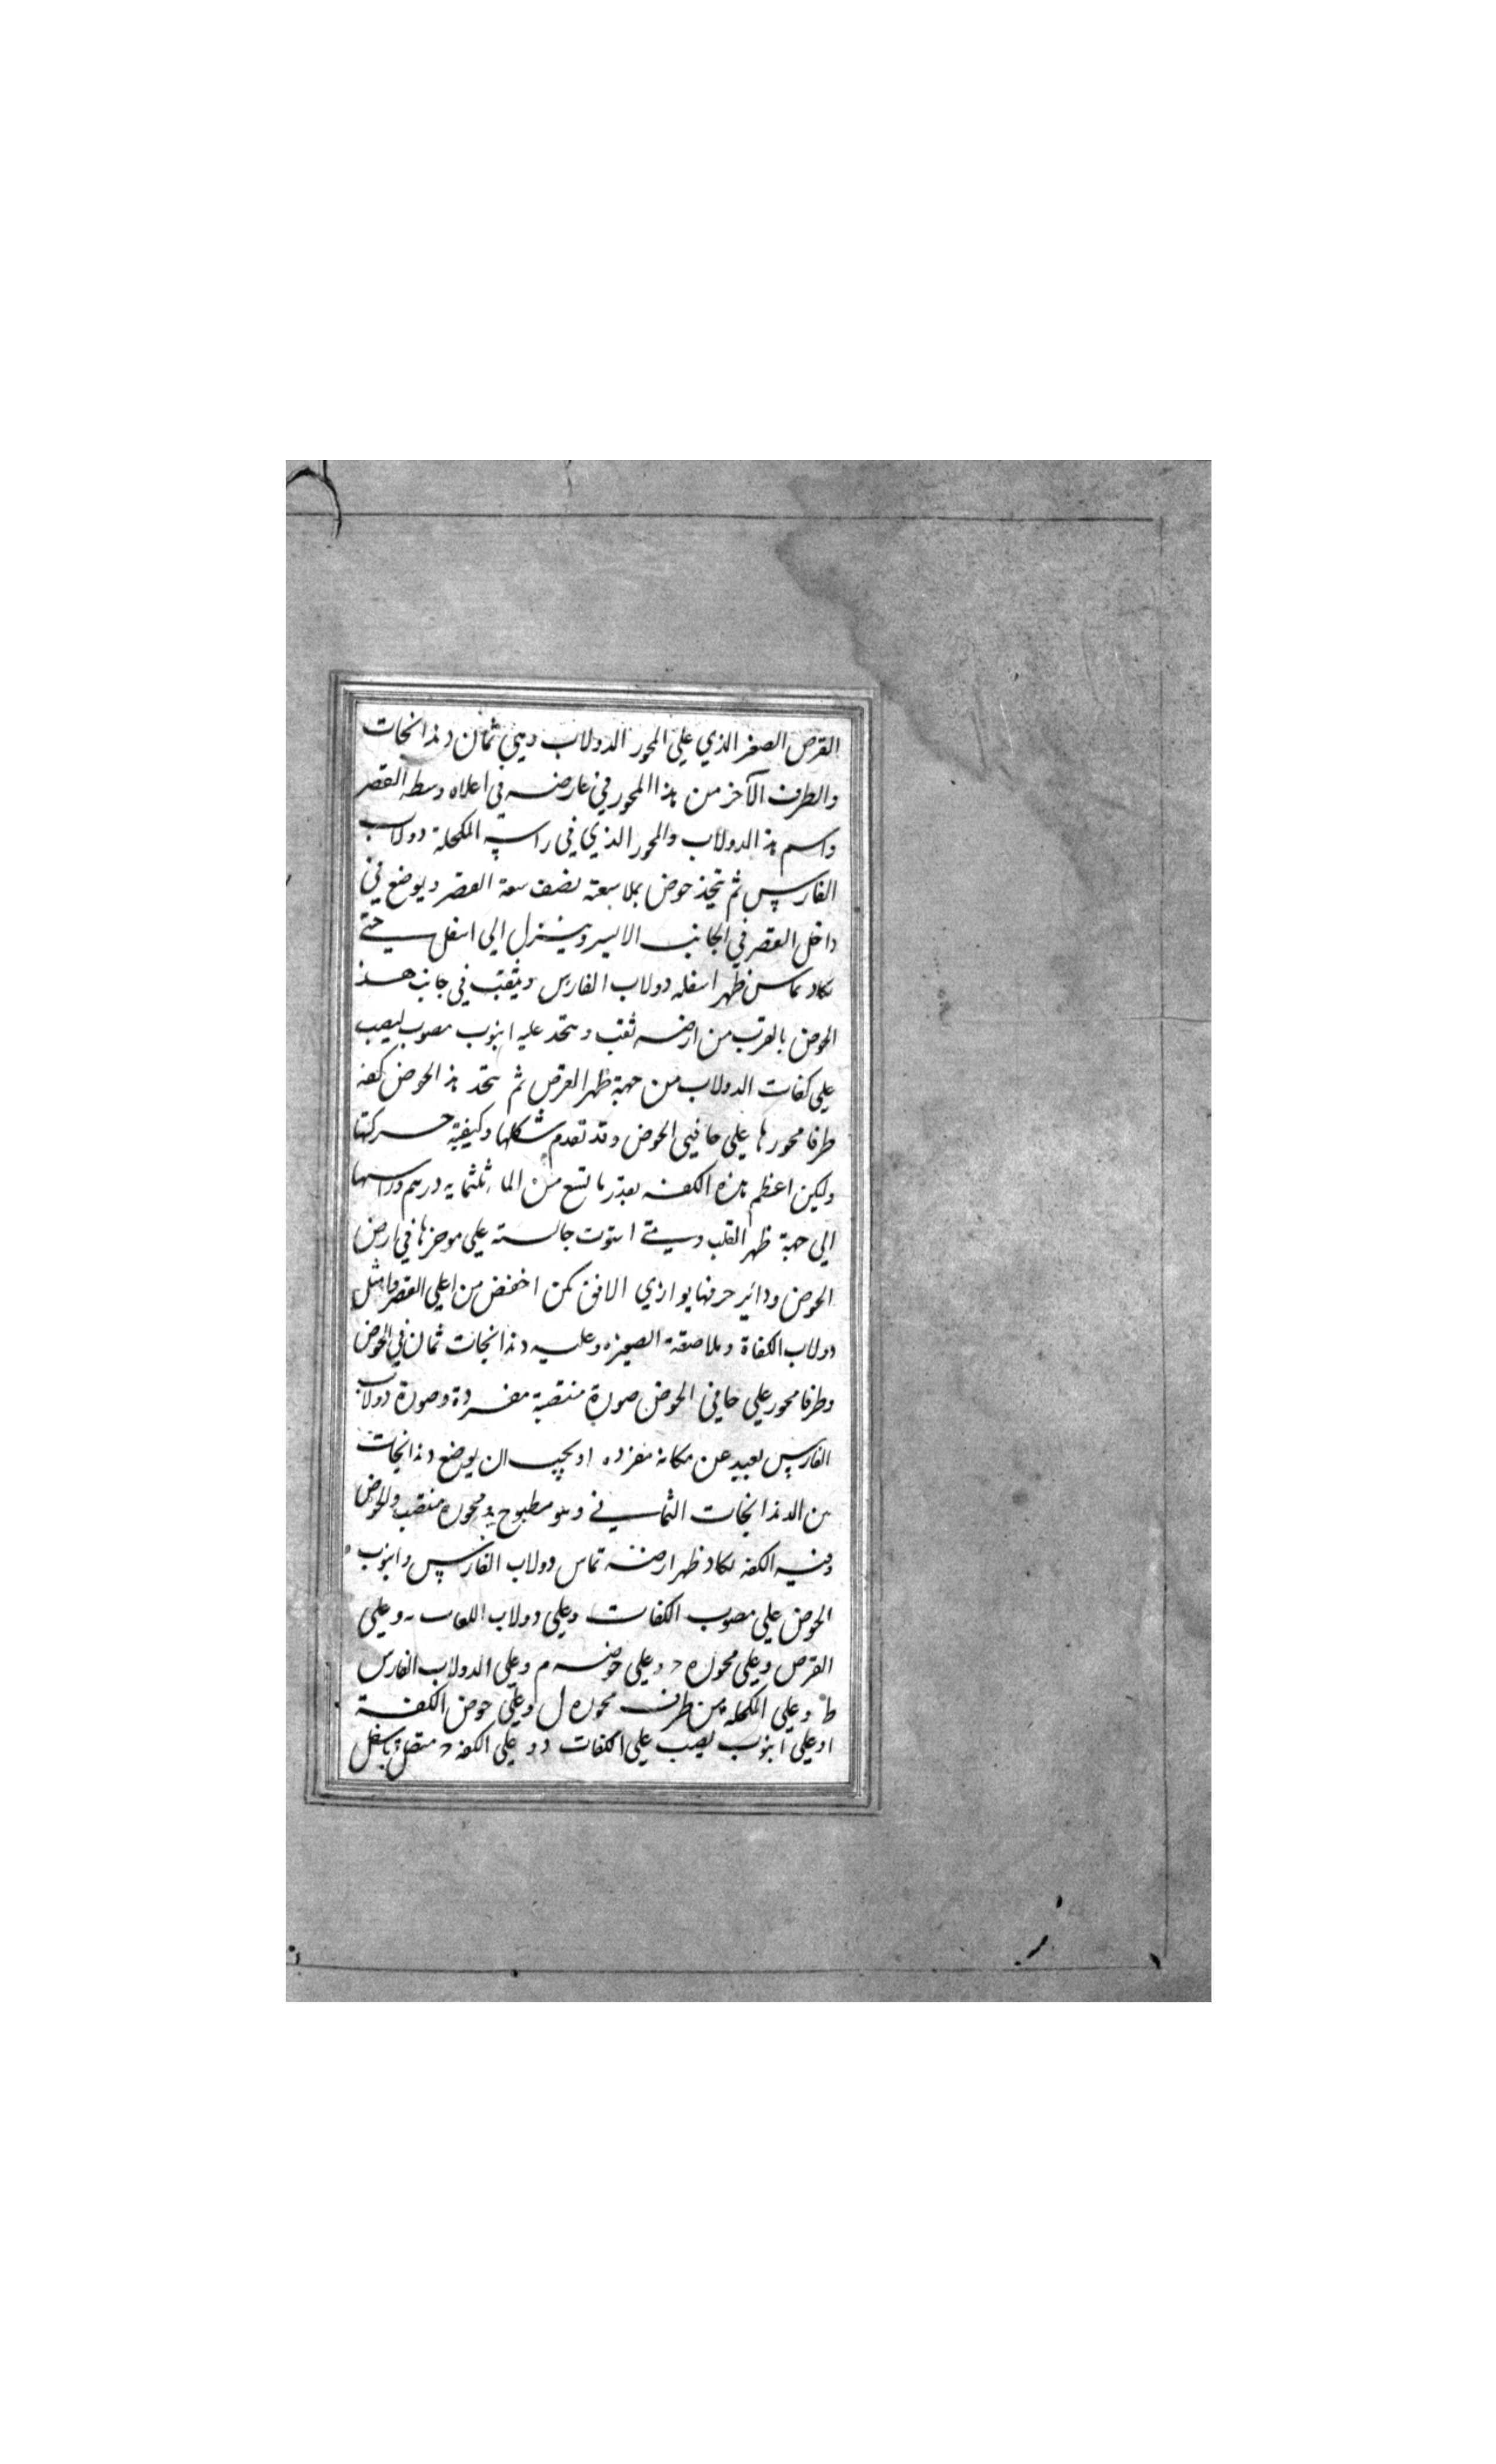 القرص الصغير الذي علي المحور الدولاب وهي ثمان دندانجات
والطرف الآخر من هذا المحور في عارضه في اعلاه وسط القصر
واسم هذ الدولاب والمحور الذي في راسه المكحلة دولاب
الفارس ثم يتخذ حوض بملا سعته نصف سعة القصر ويوضع في
داخل القصر في الجانب الايسر وينزل الي اسفل حتي
يكاد يماس ظهر اسفله دولاب الفارس ويثقب في جانب هذ
الحوض بالقرب من ارضه ثقب ويتخذ عليه انبوب مصوب ليصب
علي كفات الدولاب من جهة ظهر القرص ثم يتخذ هذ الحوض كفه
طرفا محورها علي حافيي الحوض وقد تقدم شكلها وكيفية حركتها
وليكن اعظم هذه الكفه بقدر ما تسع من الماء ثلثمايه درهم وراسها
الي جهة ظهر القلب ومتي استوت جالسته علي موخرها في ارض
الحوض ودائر حرفها يوازي الافق يمكن اخفض من اعلي القصر وامثل
دولاب الكفاة وملاصقة الصغيره وعليه دندانجات ثمان في الحوض
وطرفا محور علي حافي الحوض صورة منتصبة مفردة وصورة دولاب
الفارس بعيد عن مكانه مفرده او يجب ان يوضع دندانجات
من الدندانجات الثماني وهو مطبوح ومحوره منتصب والحوض
وفيه الكفه يكاد ظهر ارضه تماس دولاب الفارس وانبوب
الحوض علي مصوب الكفات وعلي دولاب الكفات ب وعلي
القرص وعلي محوره د وعلي حوضه م وعلي الدولاب الفارس
ط وعلي المكحله من طرف محوره ل وعلي حوض الكفة
ا وعلي انبوب يصب علي الكفات د وعلي الكفه د متصل باسفل